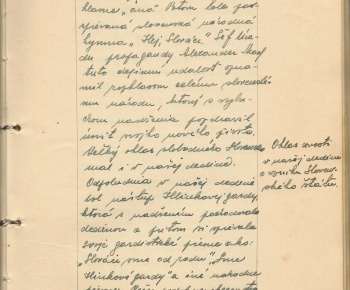 hlasné „áno". Potom bola zas-
spievaná slovenská národná
hymna „Hej, Slováci." Šéf úra-
du propagandy Alexander Mach
túto dejinnú udalosť ozná-
mil rozhlasom celému slovenské-
mu národu, ktorý s výbu-
chom nadšenia pozdravil
úsvit svojho nového života.
Veľký ohlas slobodného Slovenska
mal i v našej dedine.
Odpoludnia v našej dedine
bol nástup Hlinkovej gardy,
ktorá s nadšením pochodovala
dedinou a pritom si spievala
svoje gardistické piesne ako:
„Slováci sme od rodu", „Sme
Hlinkové gardy" a iné národné
Ohlas zvesti
v našej dedine
o vzniku Sloven-
ského štátu.